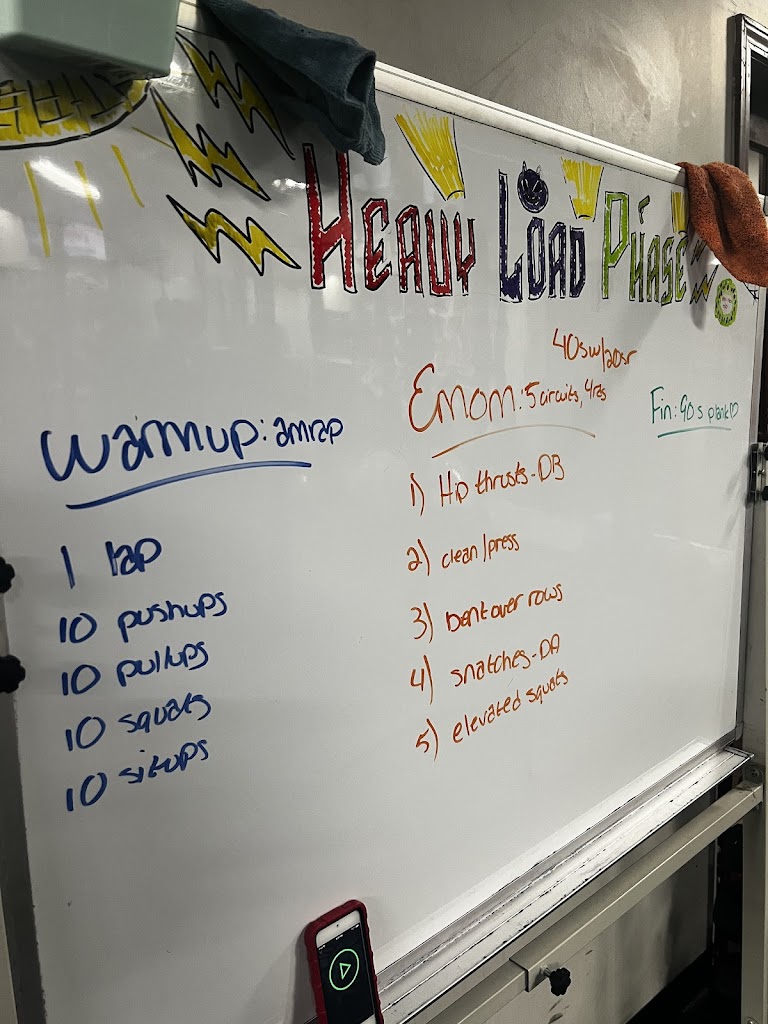 HEAVY LOAD PHASE
warmup: amrap
1 lap
10 pushups
10 pullups
10 squats
10 situps
40sw/20sr
Emom: 5 circuits, 4rds
1) Hip thrusts-DB
2) clean/press
3) bent over rows
4) snatches-DA
5) elevated squats
Fin: 90s plank